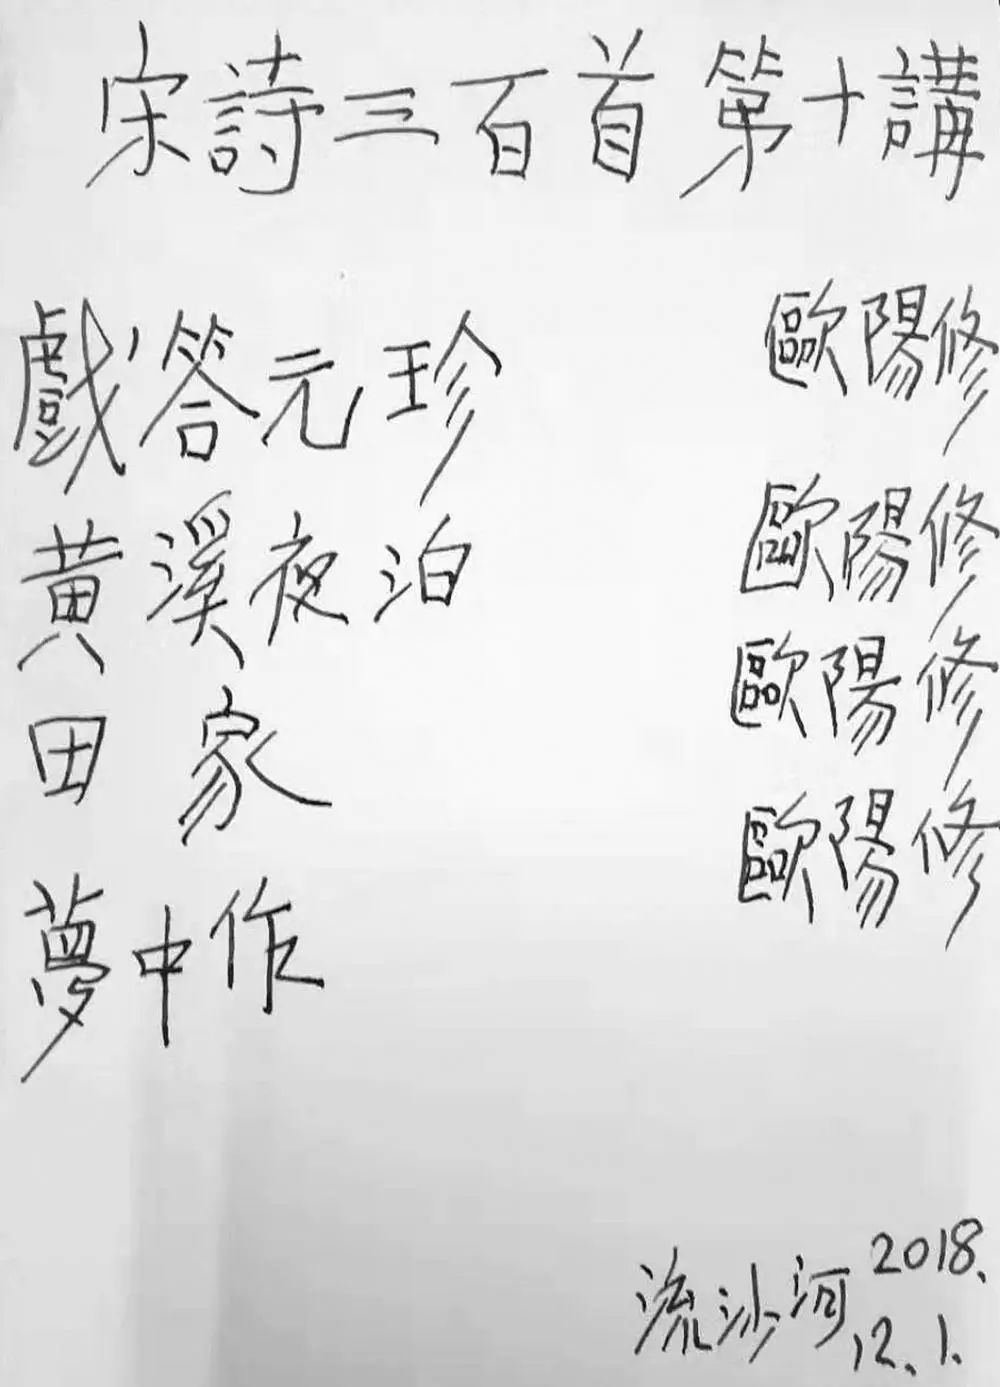 宋詩三百首第十講
戲答元珍 歐陽修
黃溪夜泊 歐陽修
田家 歐陽修
夢中作 歐陽修
流沙河 2018.
12.1.